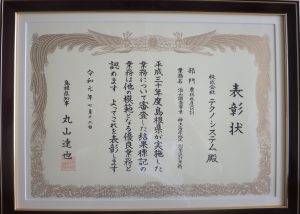 表彰状
株式会社 テクノシステム 殿
平成三十年度島根県が実施した
業務について審査した結果標記の
業務は他の模範となる優良業務と
認めます よってこれを表彰します
令和元年
島根県知事 丸山達也